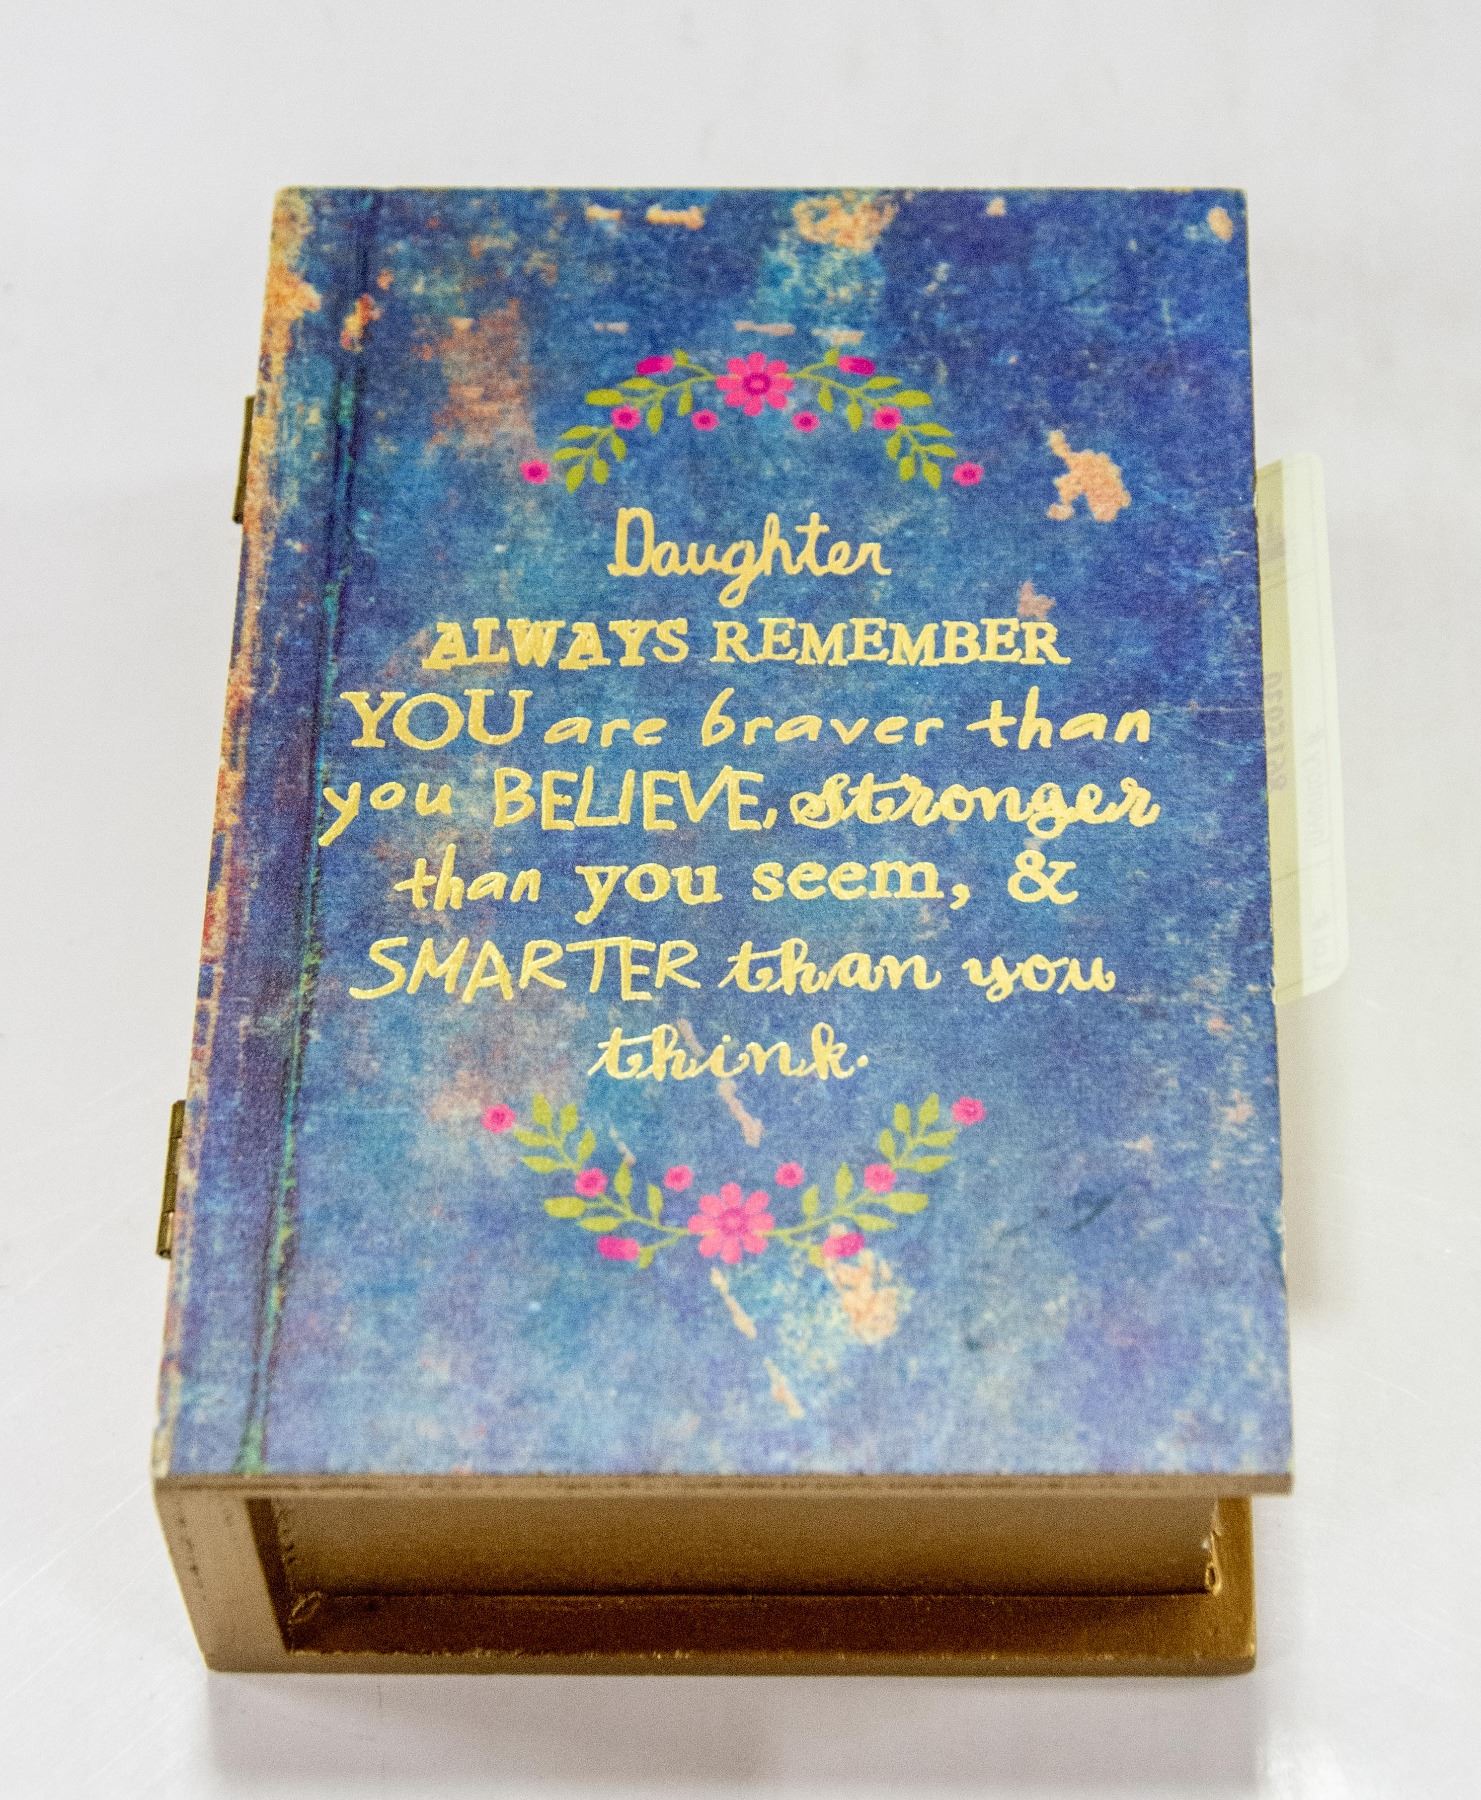 Daughter
ALWAYS REMEMBER
YOU are braver than
you BELIEVE, stronger
than you seem, &
SMARTER than you
think.